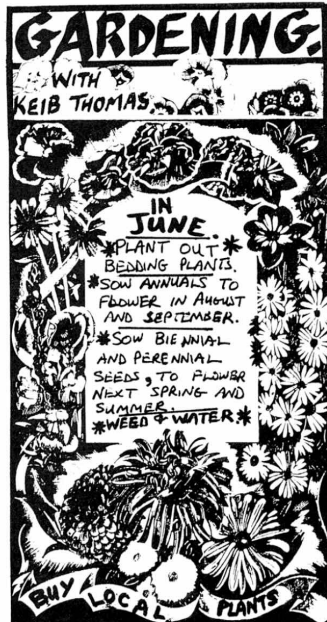 GARDENING.
WITH
KEIB THOMAS.
IN
JUNE.
*PLANT OUT*
BEDDING PLANTS.
*SOW ANNUALS TO
FLOWER IN AUGUST
AND SEPTEMBER.
*SOW BIENNIAL
AND PERENNIAL
SEEDS, TO FLOWER
NEXT SPRING AND
SUMMER.
*WEED & WATER*
BUY LOCAL PLANTS